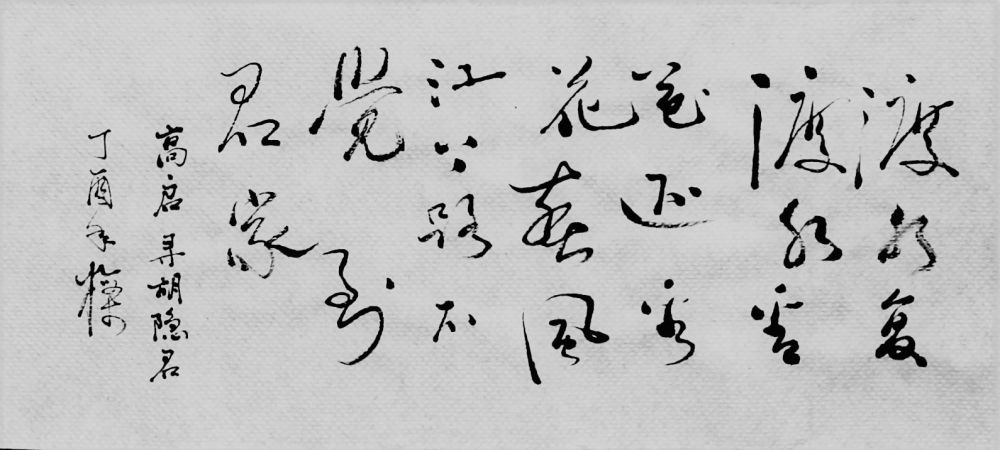 渡水复
渡水看
花还看
花春風
江上路不
覺到
君家
高启寻胡隐君
丁酉年